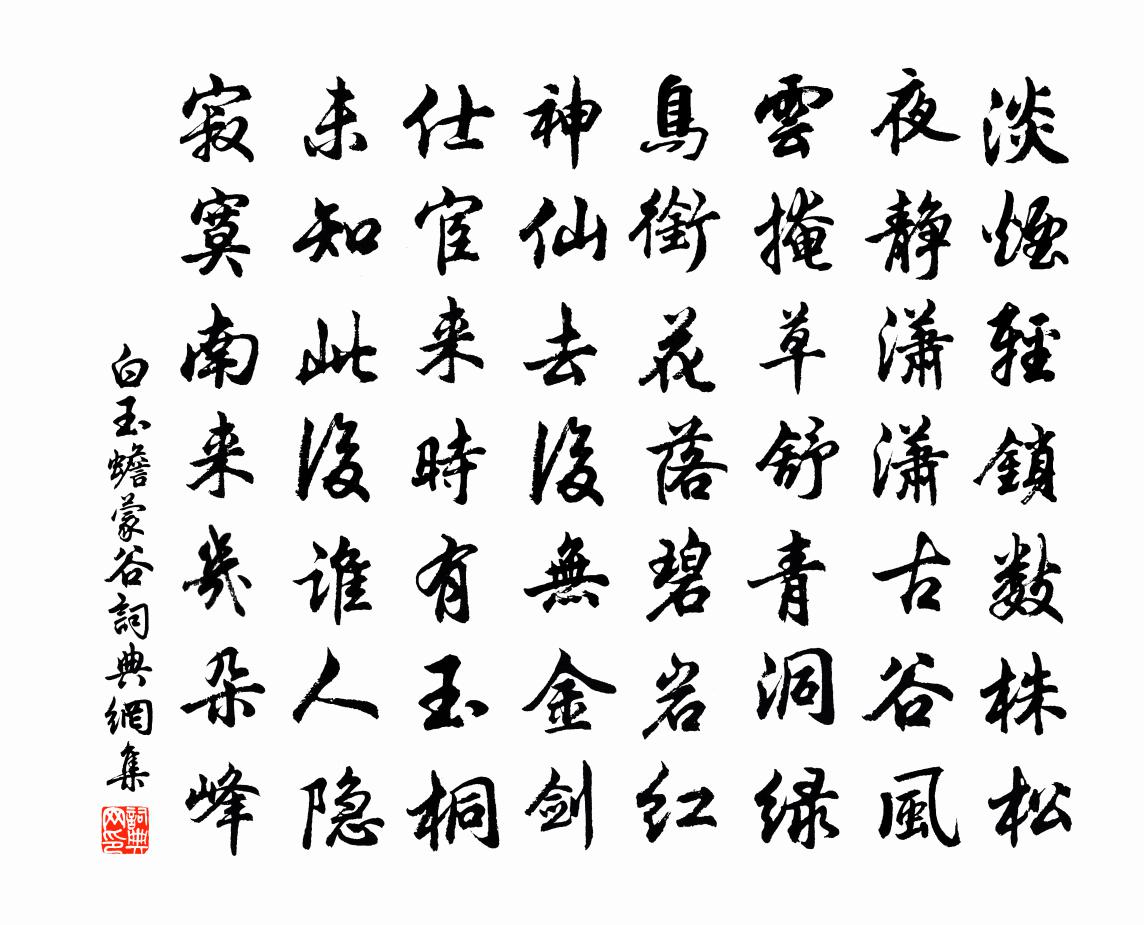 淡煙輕鎖数株松
夜靜瀟瀟古谷風
雲掩草舒青洞绿
鳥銜花落碧岩红
神仙去後無金劍
仕宦来時有玉桐
未知此後誰人隐
寂寞南来幾朵峰
白玉蟾蒙谷詞典網集
詞典网印